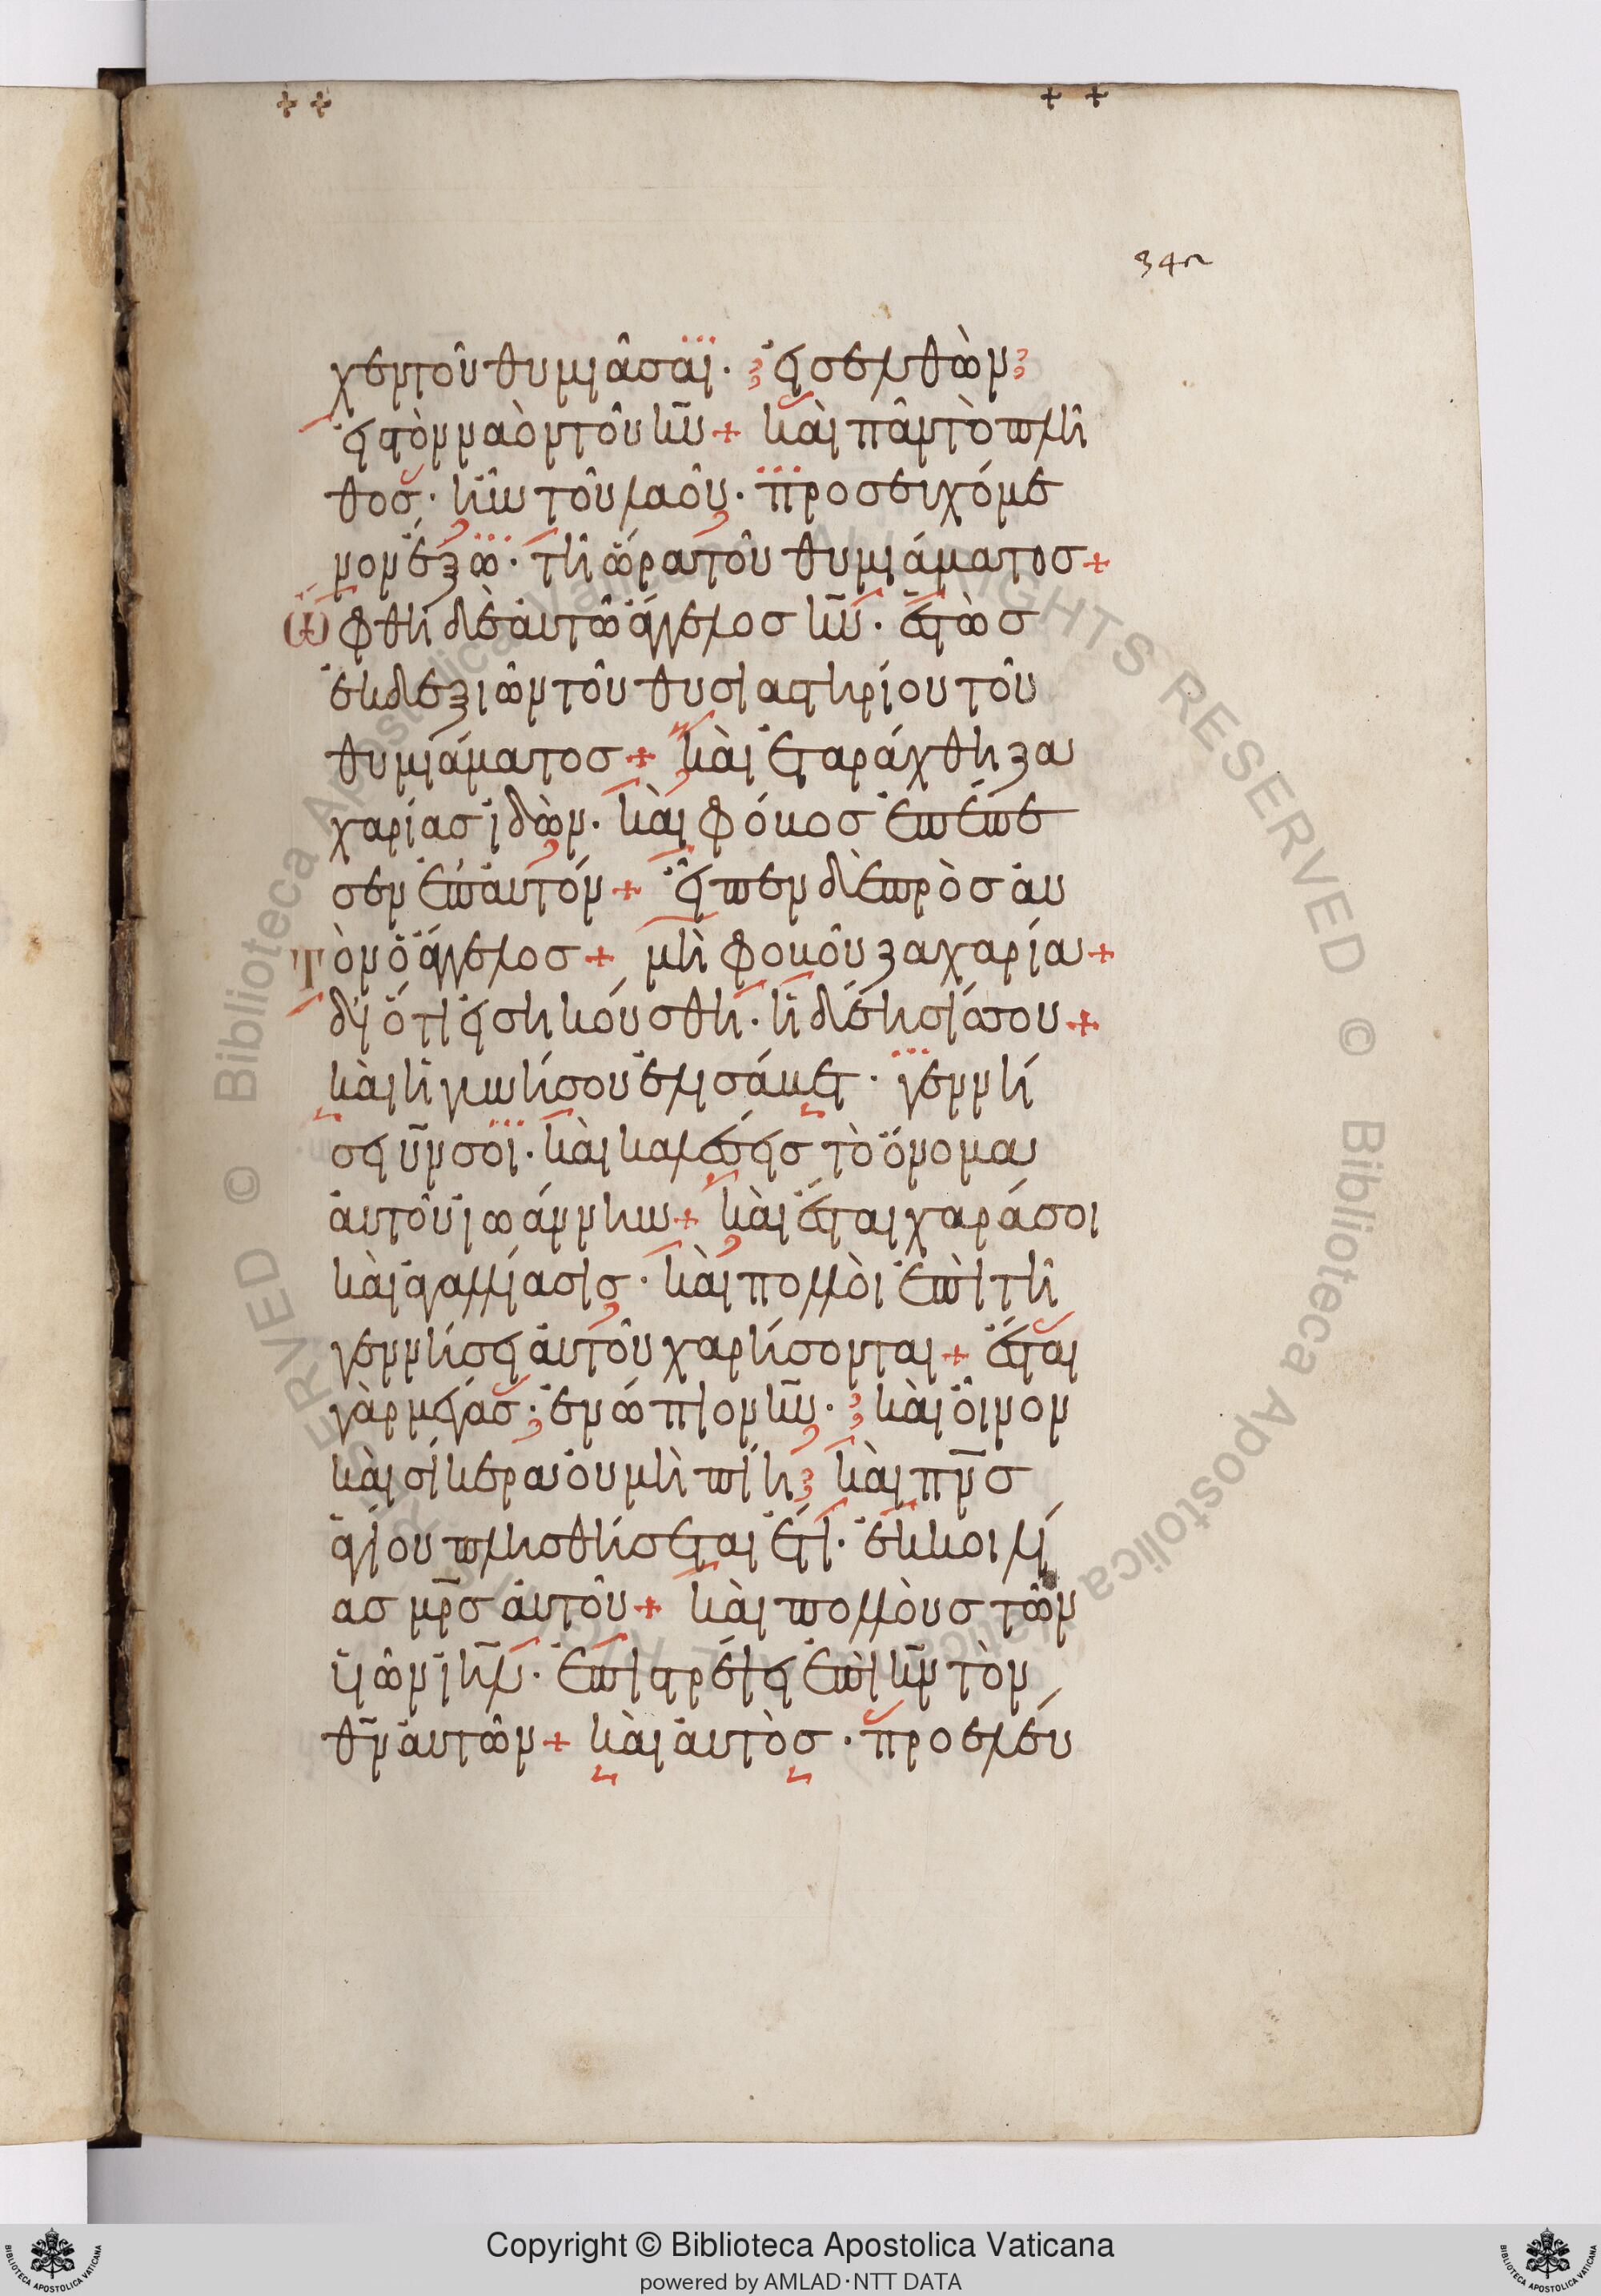 342
χεν τοῦ θυμιᾶσαι· εἰσελθὼν
εἰς τὸν ναὸν τοῦ κ̅υ̅ + καὶ πᾶν τὸ πλῆ
θος· ἦν τοῦ λαοῦ· προσευχόμε
νον ἔξω· τῆ ὥρα τοῦ θυμιάματος +
Ὤφθη δὲ αὐτῶ ἄγγελος κ̅υ̅· ἑστὼς
ἐκ δεξιῶν τοῦ θυσιαστηρίου τοῦ
θυμιάματος + καὶ ἐταράχθη ζα
χαρίας ἰδὼν· καὶ φόβος ἐπέπε
σεν ἐπ' αὐτόν + εἶπεν δὲ πρὸς αὐ
τὸν ὁ ἄγγελος + μὴ φοβοῦ ζαχαρία +
διότι εἰσηκούσθη· ἡ δέησίς σου +
καὶ ἡ γυνή σου ἐλισάβετ· γεννή
σει υ̅ν̅ σοι· καὶ καλέσεις τὸ ὄνομα
αὐτοῦ ἰωάννην + καὶ ἔσται χαρά σοι
καὶ ἀγαλλίασις· καὶ πολλοὶ ἐπὶ τῆ
γεννήσει αὐτοῦ χαρήσονται + ἔσται
γὰρ μέγας· ἐνώπιον κ̅υ̅· καὶ οἶνον
καὶ σίκερα οὐ μὴ πίη καὶ π̅ν̅ς
ἁγίου πλησθήσεται ἔτι· ἐκ κοιλί
ας μ̅ρ̅ς αὐτοῦ + καὶ πολλοὺς τῶν
υἱῶν ι̅η̅λ̅· ἐπιστρέψει ἐπὶ κ̅ν̅ τὸν
θ̅ν̅ αὐτῶν + καὶ αὐτὸς· προελεύ
Copyright © Biblioteca Apostolica Vaticana
powered by AMLAD·NTT DATA